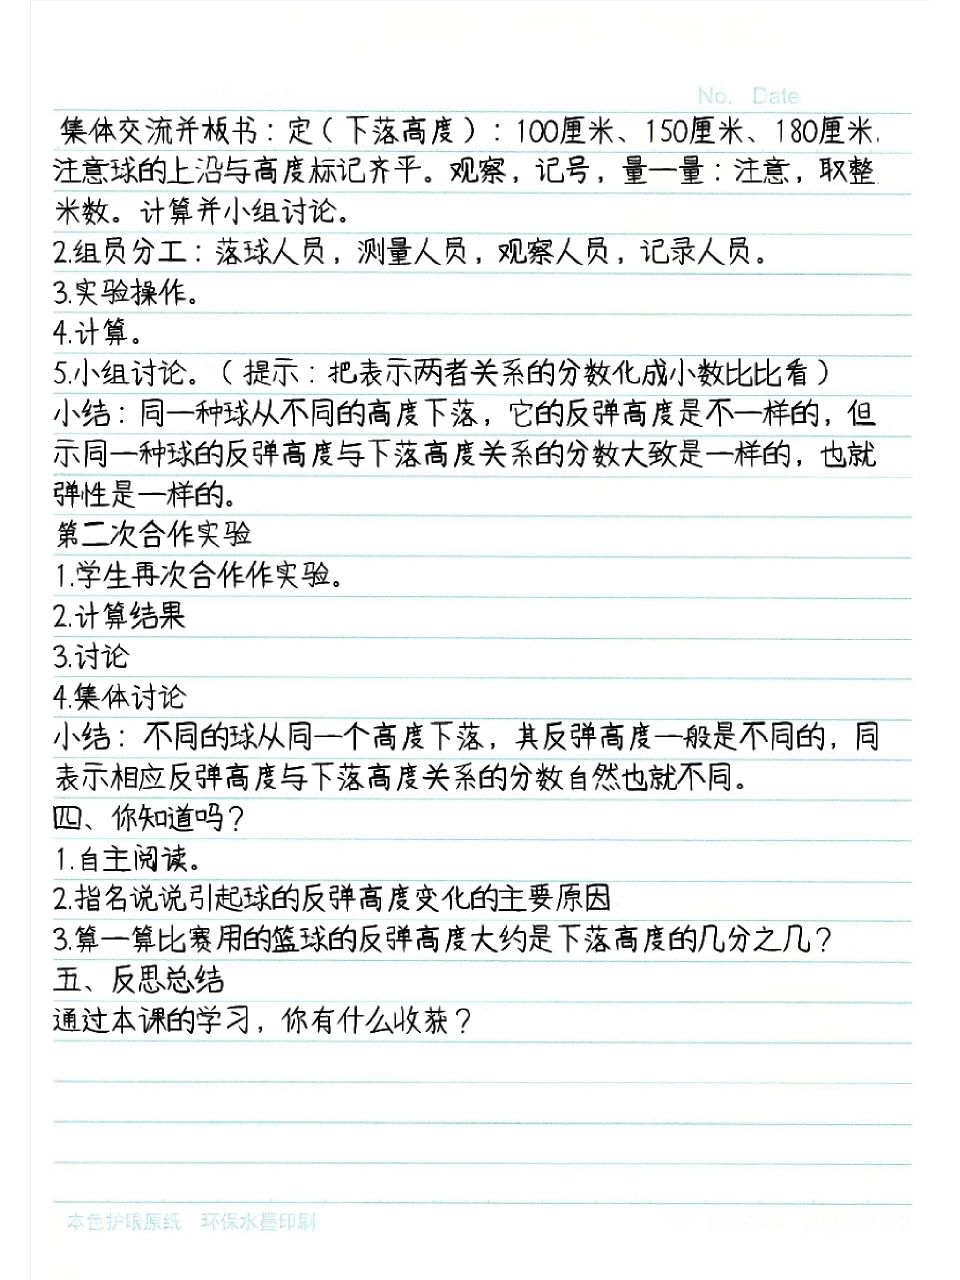 No. Date
集体交流并板书：定（下落高度）：100厘米、150厘米、180厘米.
注意球的上沿与高度标记齐平。观察，记号，量一量：注意，取整
米数。计算并小组讨论。
2.组员分工：落球人员，测量人员，观察人员，记录人员。
3.实验操作。
4.计算。
5.小组讨论。（提示：把表示两者关系的分数化成小数比比看）
小结：同一种球从不同的高度下落，它的反弹高度是不一样的，但
示同一种球的反弹高度与下落高度关系的分数大致是一样的，也就
弹性是一样的。
第二次合作实验
1.学生再次合作作实验。
2.计算结果
3.讨论
4.集体讨论
小结：不同的球从同一个高度下落，其反弹高度一般是不同的，同
表示相应反弹高度与下落高度关系的分数自然也就不同。
四、你知道吗？
1.自主阅读。
2.指名说说引起球的反弹高度变化的主要原因
3.算一算比赛用的篮球的反弹高度大约是下落高度的几分之几？
五、反思总结
通过本课的学习，你有什么收获？
本色护眼原纸 环保水墨印刷